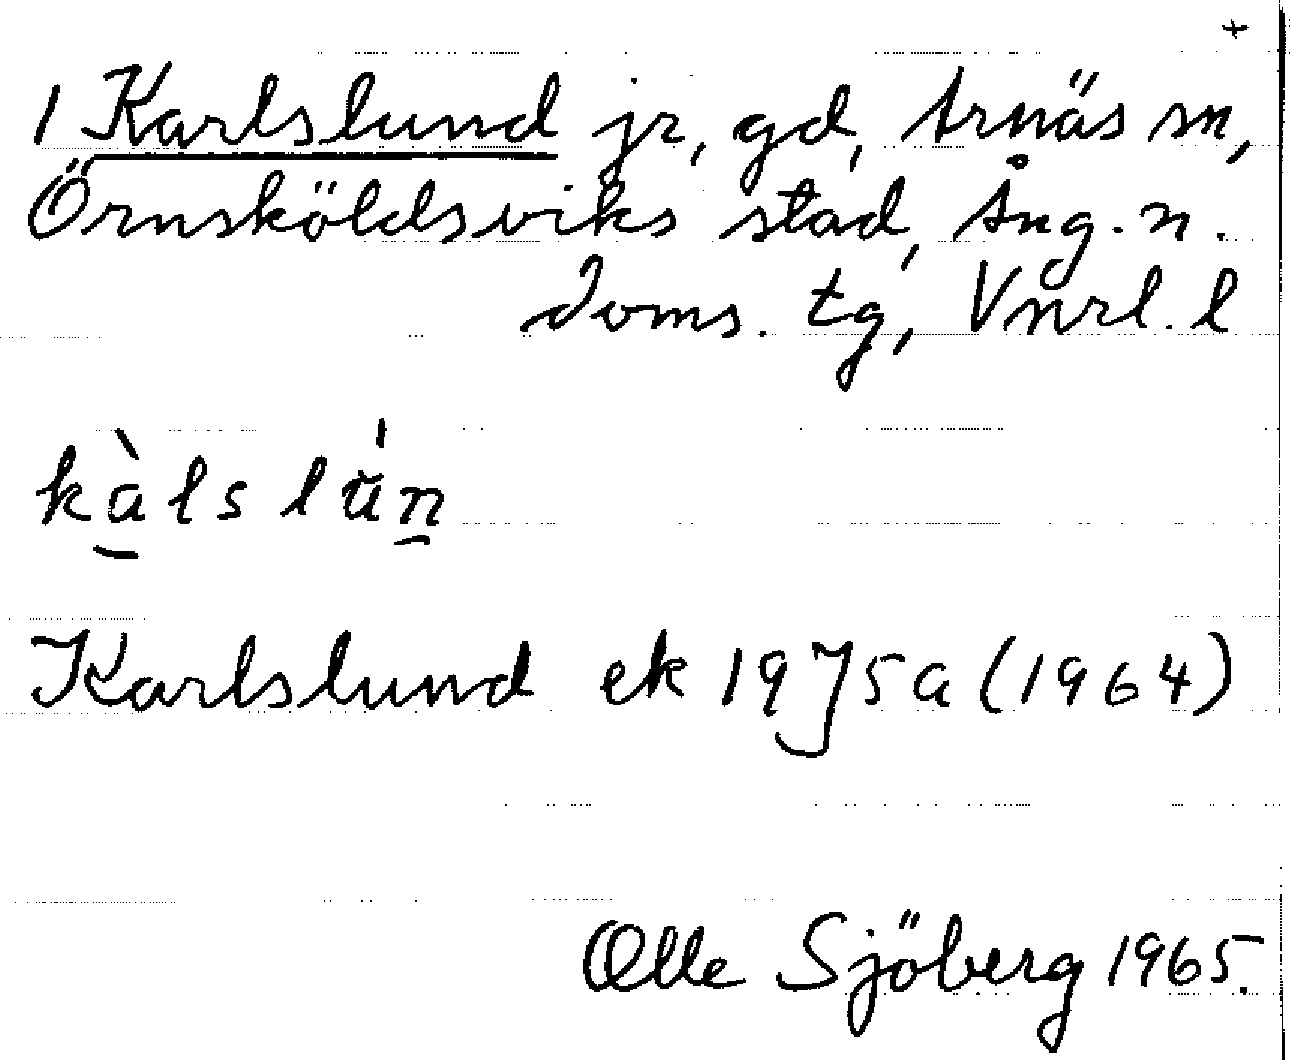 +
1 Karlslund jr, gd, Arnäs sn,
Örnsköldsviks stad, Ång. n.
doms. tg, Vnrl. l
kàlslŭ́n
Karlslund ek 19J5a (1964)
Olle Sjöberg 1965.